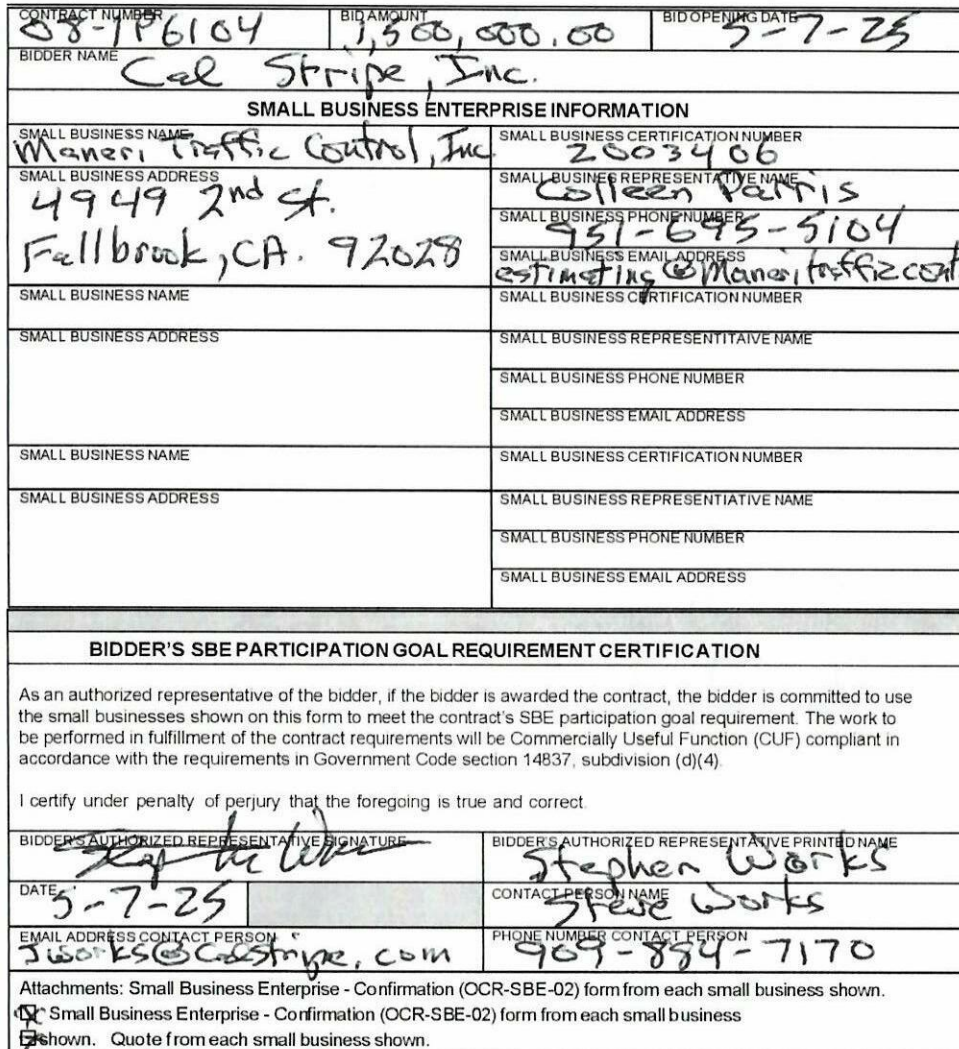 CONTRACT NUMBER BID AMOUNT BID OPENING DATE
08-1P6104 1,500,000.00 5-7-25
BIDDER NAME
Cal Stripe, Inc.
SMALL BUSINESS ENTERPRISE INFORMATION
SMALL BUSINESS NAME SMALL BUSINESS CERTIFICATION NUMBER
Maneri Traffic Control, Inc 2003406
SMALL BUSINESS ADDRESS SMALL BUSINES REPRESENTATIVE NAME
4949 2nd St. Colleen Parris
SMALL BUSINESS PHONE NUMBER
Fallbrook, CA. 92028 951-695-5104
SMALL BUSINESS EMAIL ADDRESS
estimating@Maneritrafficcont
SMALL BUSINESS NAME SMALL BUSINESS CERTIFICATION NUMBER
SMALL BUSINESS ADDRESS SMALL BUSINESS REPRESENTITAIVE NAME
SMALL BUSINESS PHONE NUMBER
SMALL BUSINESS EMAIL ADDRESS
SMALL BUSINESS NAME SMALL BUSINESS CERTIFICATION NUMBER
SMALL BUSINESS ADDRESS SMALL BUSINESS REPRESENTIATIVE NAME
SMALL BUSINESS PHONE NUMBER
SMALL BUSINESS EMAIL ADDRESS
BIDDER'S SBE PARTICIPATION GOAL REQUIREMENT CERTIFICATION
As an authorized representative of the bidder, if the bidder is awarded the contract, the bidder is committed to use
the small businesses shown on this form to meet the contract's SBE participation goal requirement. The work to
be performed in fulfillment of the contract requirements will be Commercially Useful Function (CUF) compliant in
accordance with the requirements in Government Code section 14837, subdivision (d)(4).
I certify under penalty of perjury that the foregoing is true and correct.
BIDDER'S AUTHORIZED REPRESENTATIVE SIGNATURE BIDDER'S AUTHORIZED REPRESENTATIVE PRINTED NAME
Stephen Works
DATE CONTACT PERSON NAME
5-7-25 Steve Works
EMAIL ADDRESS CONTACT PERSON PHONE NUMBER CONTACT PERSON
Jworks@Calstripe.com 909-884-7170
Attachments: Small Business Enterprise - Confirmation (OCR-SBE-02) form from each small business shown.
Small Business Enterprise - Confirmation (OCR-SBE-02) form from each small business
shown. Quote from each small business shown.